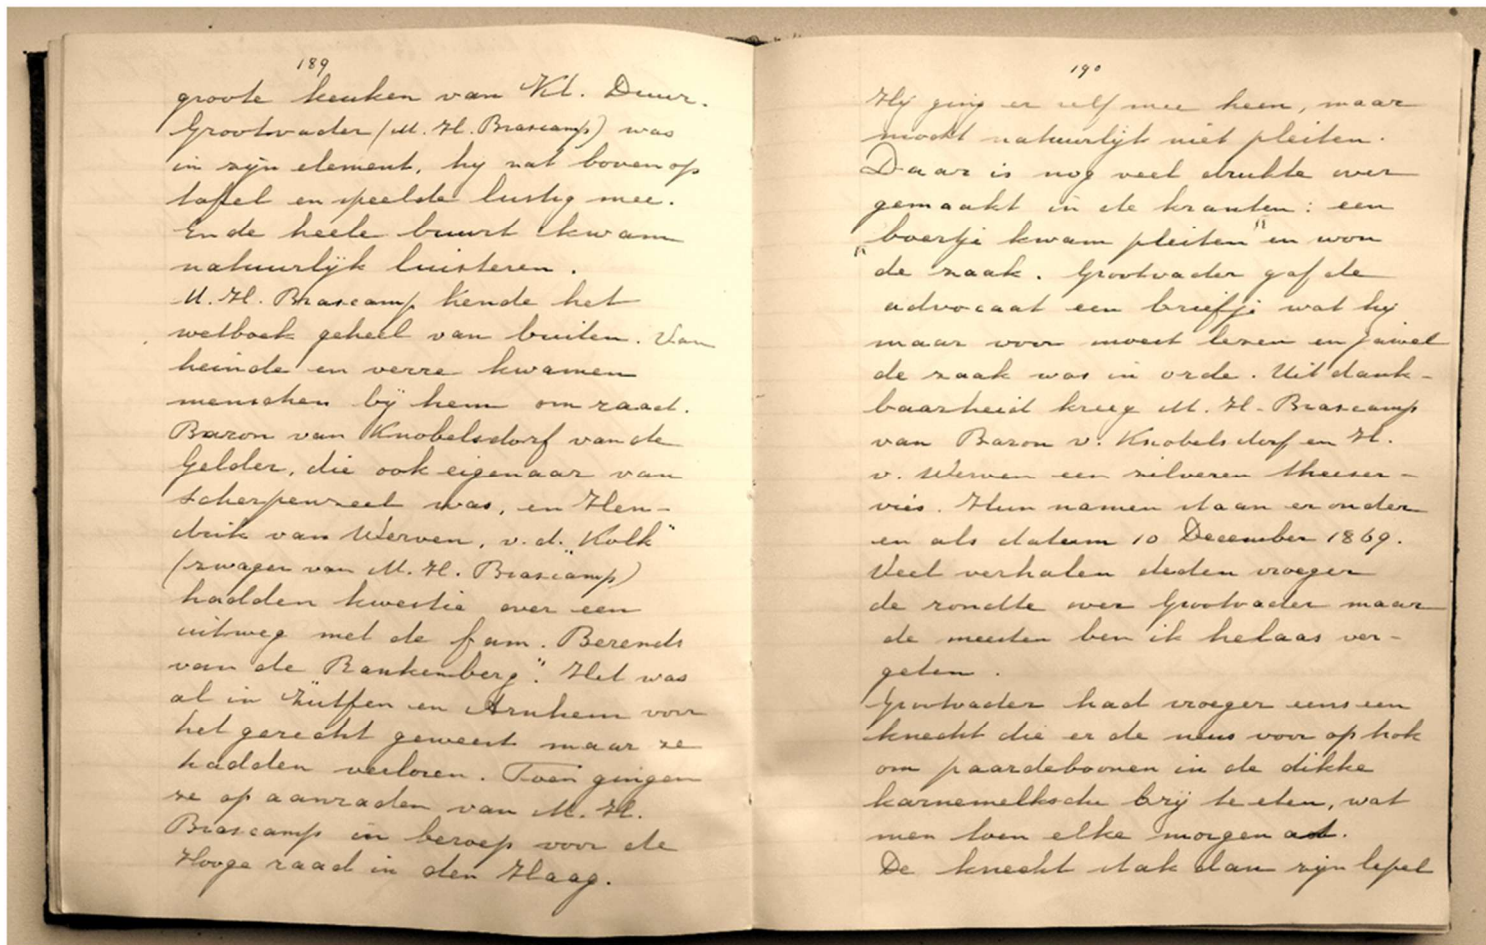 189
groote keuken van Kl. Duur.
Grootvader (M. H. Brascamp) was
in zijn element, hij zat boven op
tafel en speelde lustig mee.
En de heele buurt kwam
natuurlijk luisteren.
M. H. Brascamp kende het
wetboek geheel van buiten. Van
heinde en verre kwamen
menschen bij hem om raad.
Baron van Knobelsdorf van de
Gelder, die ook eigenaar van
Scherpenzeel was, en Hen-
drik van Werven, v. d. "Kolk"
(zwager van M. H. Brascamp)
hadden kwestie over een
uitweg met de fam. Berends
van de "Rankenberg". Het was
al in Zutfen en Arnhem voor
het gerecht geweest maar ze
hadden verloren. Toen gingen
ze op aanraden van M. H.
Brascamp in beroep voor de
Hooge raad in den Haag.
190
Hij ging er zelf mee heen, maar
mocht natuurlijk niet pleiten.
Daar is nog veel drukte over
gemaakt in de kranten: een
"boertje kwam pleiten" en won
de zaak. Grootvader gaf de
advocaat een briefje wat hij
maar voor moest lezen en jawel
de zaak was in orde. Uit dank-
baarheid kreeg M. H. Brascamp
van Baron v. Knobelsdorf en H.
v. Werven een zilveren theeser-
vies. Hun namen staan er onder
en als datum 10 December 1869.
Veel verhalen deden vroeger
de rondte over Grootvader maar
de meesten ben ik helaas ver-
geten.
Grootvader had vroeger eens een
knecht die er de neus voor optrok
om paardeboonen in de dikke
karnemelksche brij te eten, wat
men toen elke morgen at.
De knecht stak dan zijn lepel